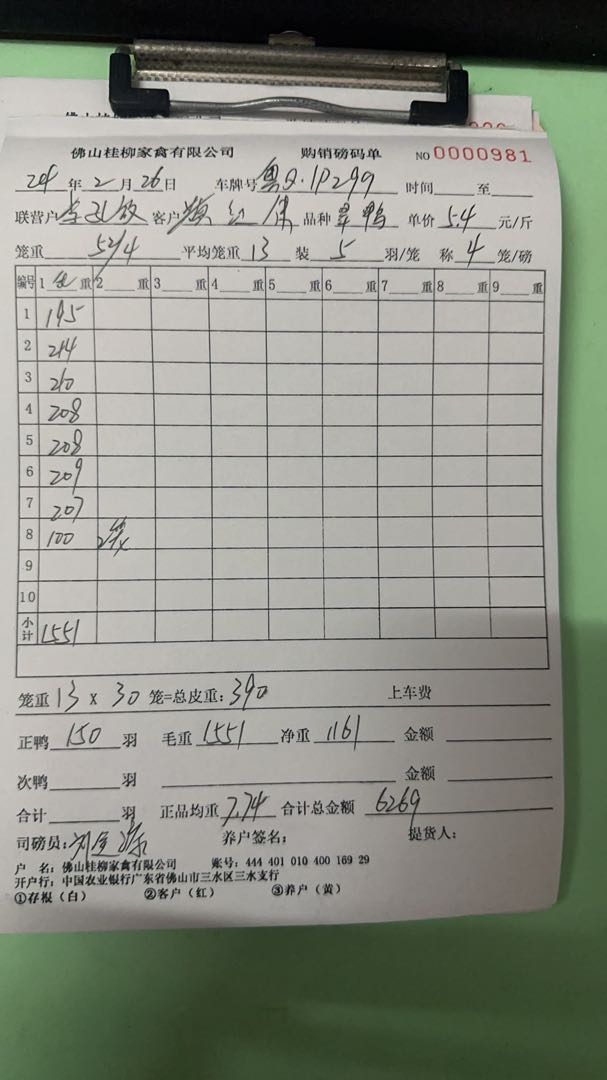 佛山桂柳家禽有限公司 购销磅码单 NO 0000981
年2月26日 车牌号 粤Q·1P299 时间 至
联营户 客户 品种 单价5.4元/斤
笼重 52/4 平均笼重 13 装 5 羽/笼 称 4 笼/磅
编号 1 毛 重 2 重 3 重 4 重 5 重 6 重 7 重 8 重 9 重
1 195
2 214
3 210
4 208
5 208
6 209
7 207
8 100 2笼
9
10
小计 1551
笼重 13 x 30 笼=总皮重:390 上车费
正鸭 150 羽 毛重 1551 净重 1161 金额
次鸭 羽 金额
合计 羽 正品均重 7.74 合计总金额 6269
司磅员: 养户签名: 提货人:
户 名:佛山桂柳家禽有限公司 账号:444 401 010 400 169 29
开户行:中国农业银行广东省佛山市三水区三水支行
①存根(白) ②客户(红) ③养户(黄)